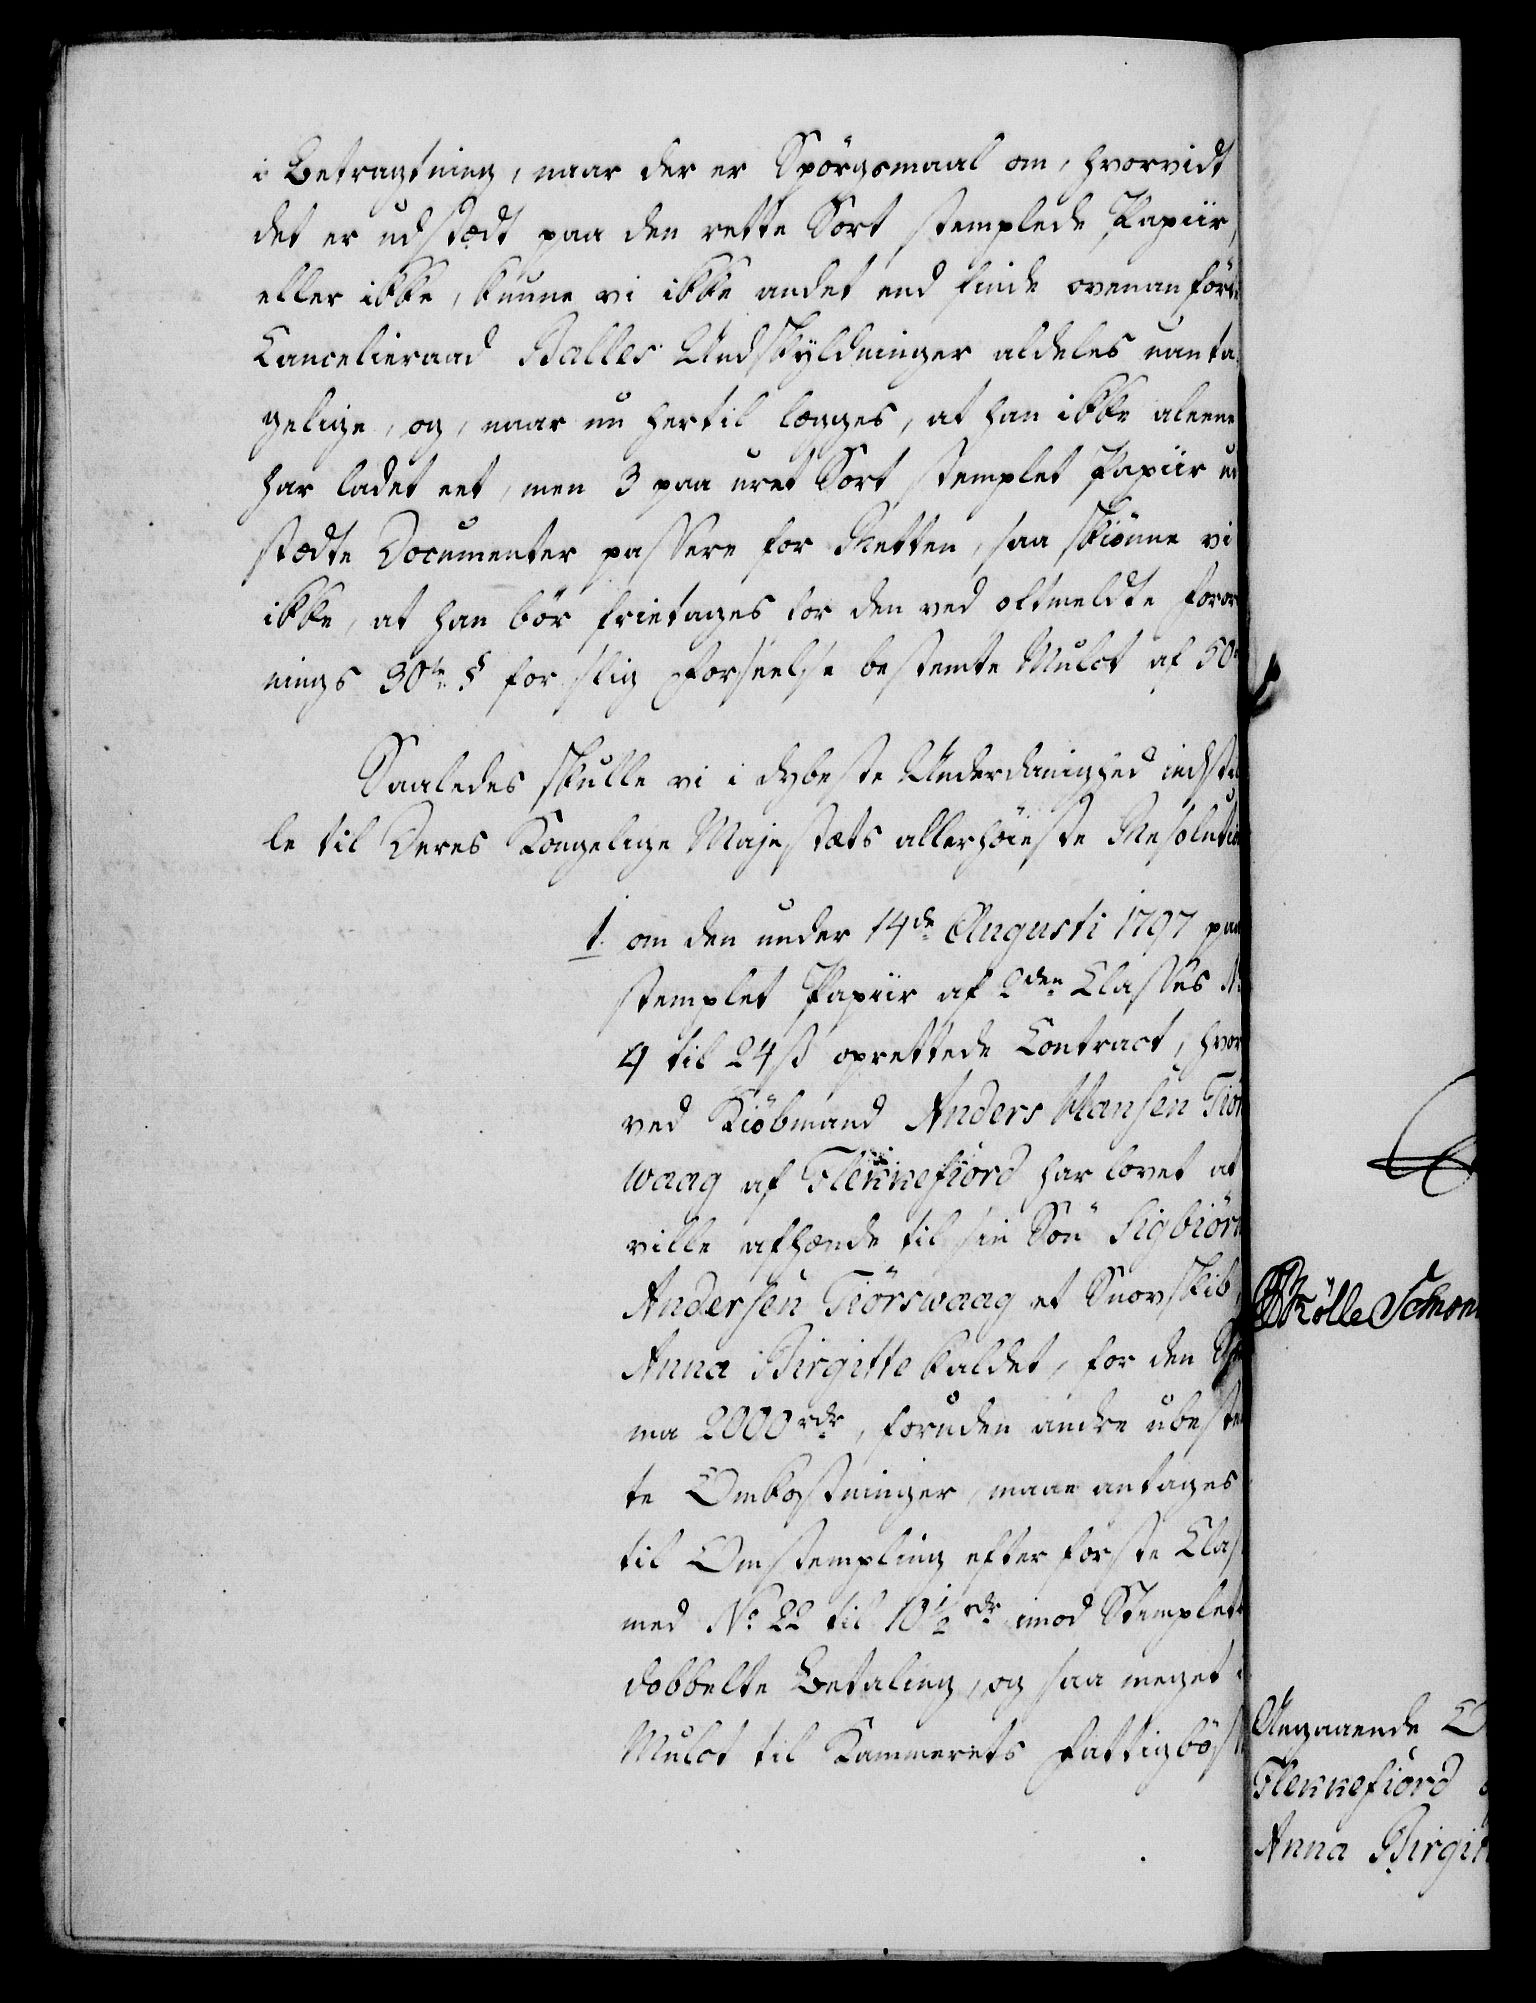 i Betragtning, naar der er Spörgsmaal om, hvorvidt
det er udstædt paa den rette Sort stemplede Papiir,
eller ikke, kunne vi ikke andet end finde ovenanförte
Cancelieraad Balles Undskyldninger aldeles uanta-
gelige, og, naar nu hertil lægges, at han ikke aleene
har ladet eet, men 3 paa uret Sort stemplet Papiir ud
stædte Documenter passere for Retten, saa skiönne vi
ikke, at han bör frietages for den ved oftmeldte Foror
nings 30te § for slig Forseelse bestemte Mulct af 50
Saaledes skulle vi i dybeste Underdanighed indstil
le til Deres Kongelige Majestæts allerhöieste Resolution
1. om den under 14de Augusti 1797 paa
stemplet Papiir af 2den Classes No
4 til 24 ß oprettede Contract, hvor
ved Kiöbmand Anders Hansen Tiör
waag af Flekkefiord har lovet at
ville afhænde til sin Sön Sigbiörn
Andersen Tiörswaag et Snov Skib,
Anna Birgitte kaldet, for den Sum
ma 2000 rdr, foruden andre ubestem
te Omkostninger, maae antages
til Omstempling efter förste Clas
med No 22 til 10½ rdr imod Stemplets
dobbelte Betaling, og saa meget i
Mulct til Kammerets Fattigbös
Kölle Schmon
Angaaende
Flekkefiord
Anna Birgit